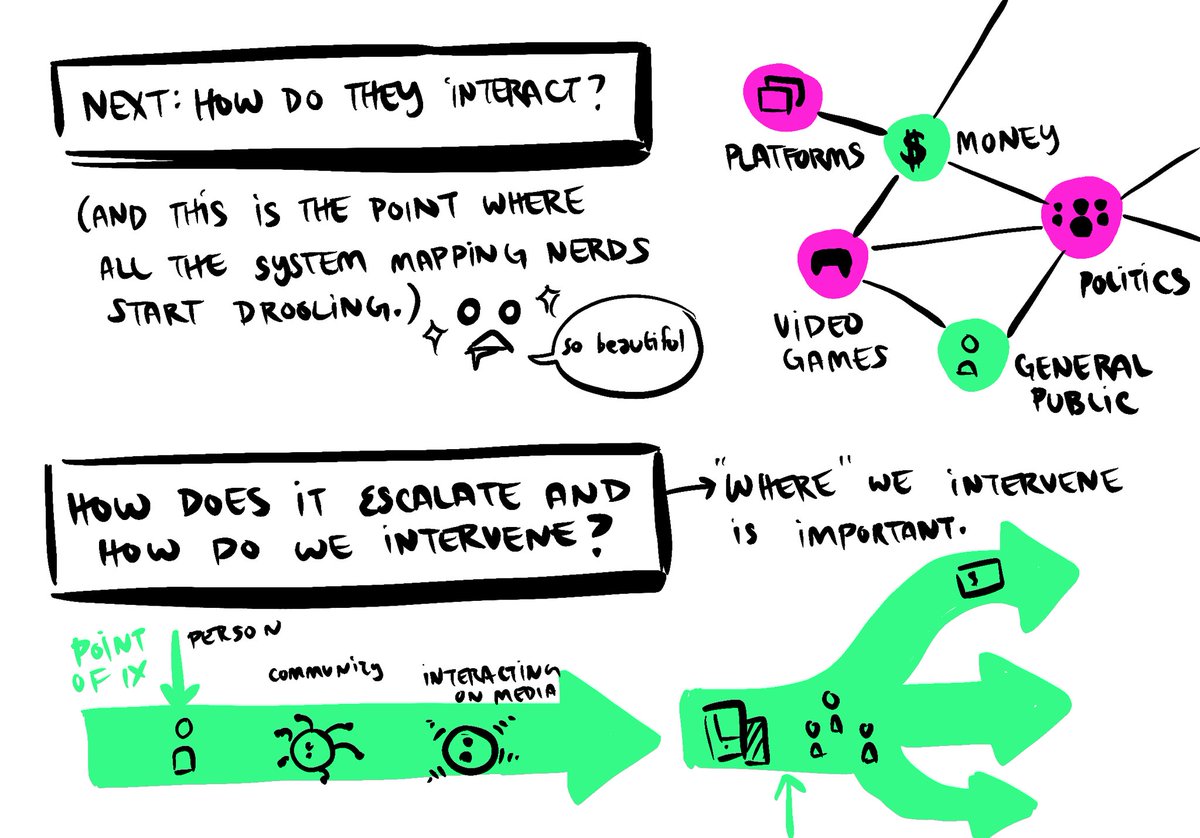 NEXT: HOW DO THEY INTERACT?
(AND THIS IS THE POINT WHERE
ALL THE SYSTEM MAPPING NERDS
START DROOLING.)
so beautiful
PLATFORMS
$
MONEY
POLITICS
VIDEO
GAMES
GENERAL
PUBLIC
HOW DOES IT ESCALATE AND
HOW DO WE INTERVENE?
"WHERE" WE INTERVENE
IS IMPORTANT.
POINT
OF IX
PERSON
COMMUNITY
INTERACTING
ON MEDIA
$